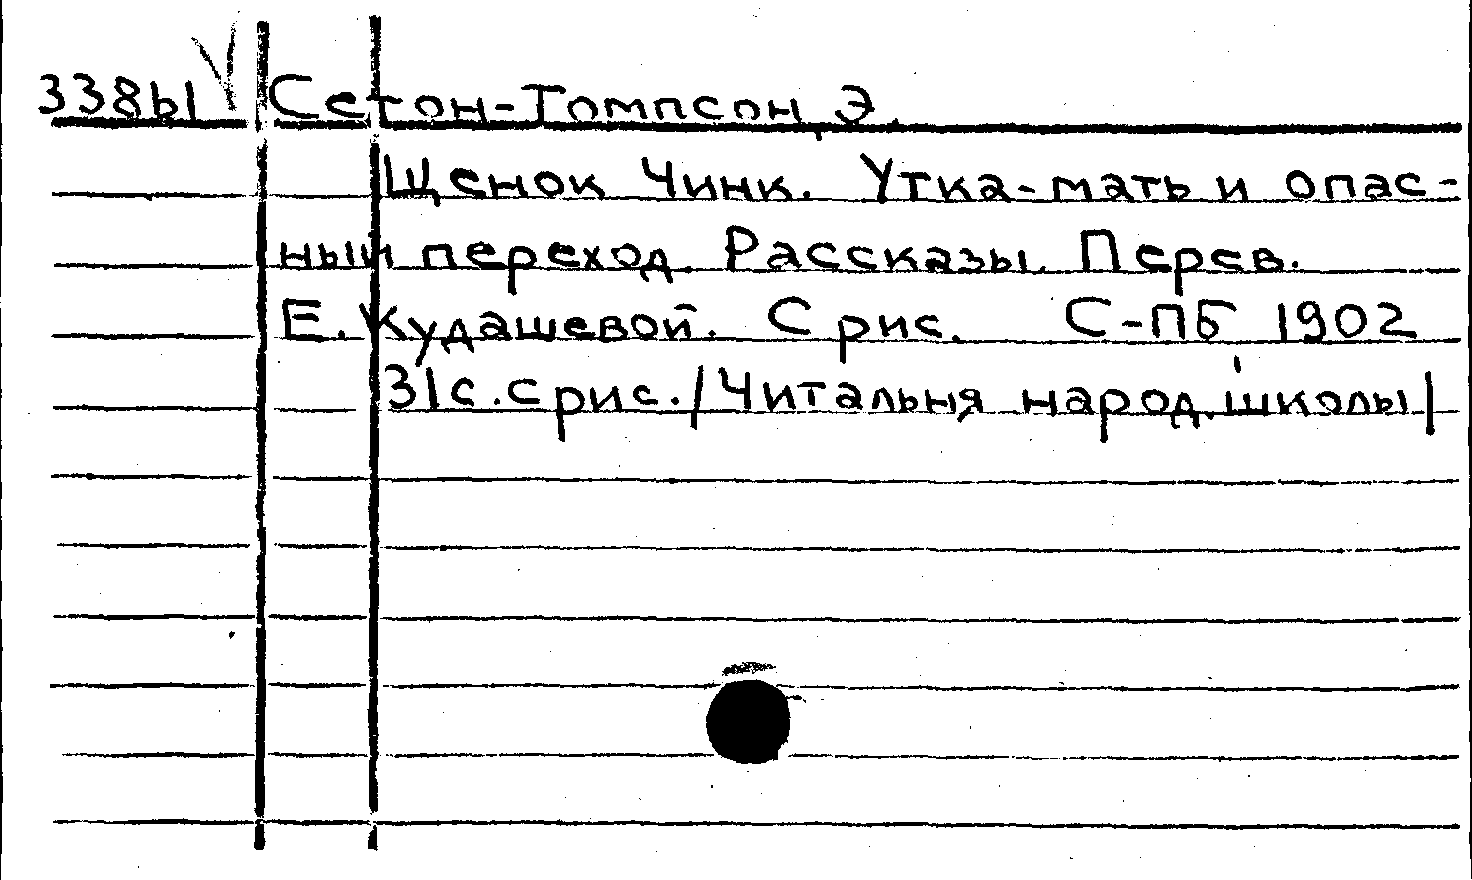 338ы Сетон-Томпсон, Э.
Щенок Чинк. Утка-мать и опас-
ный переход. Рассказы. Перев.
Е. Кудашевой. С рис. С-ПБ 1902
31с. с рис. /Читальня народ. школы/